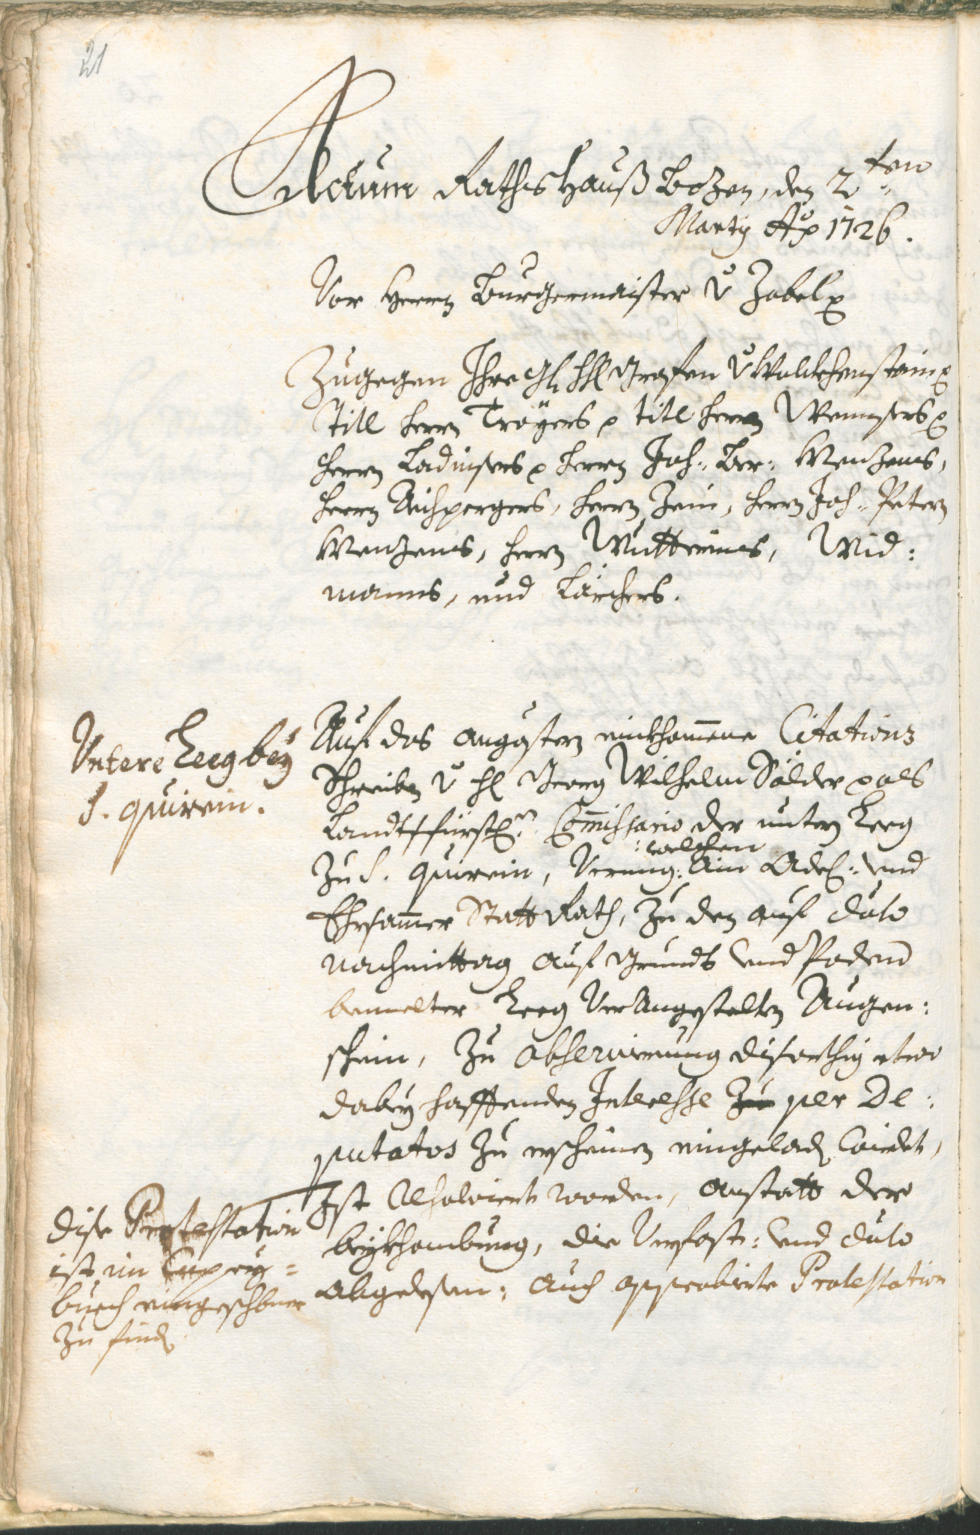 21
Actum Rathshauß Bozen, den 2ten
Martij Ao 1726.
Vor Herrn Burgermaister v Zobel
Zugegen Ihro Grafen v Wolckhenstain
Titl Herrn Troyers titl Herrn Wenzers
Herrn Ladinsers Herrn Joh: Ber: Menzens,
Herrn Aichpergers, Herrn Zein, Herrn Joh: Petern
Menzens, Herrn Mutterins, Wid:
manns, und Larchers.
Untere Leeg bey
S. Quirein.
Auf das angestern einkhommene Citations
Schreiben v H Georg Wilhelm Sölder als
Landtsfürstl. Commissario der untern Leeg
zu S. Quirein, Vermög: welchen Ain Adel: und
Ehrsammer Statt Rath, zu den auf dato
nachmittag auf Grundt und Poden
bemelter Leeg Verangestelten Augen:
schein, zu observierung diserthig etwo
dabey hafftenden Interesse zu per De:
putatos zu erscheinen eingeladen wirdet,
Ist Resolviert worden, anstatt der
beykhombung, die Verfaste: und dato
abgelesen: auch approbierte Protestation
dise Protestation
ist im Copey=
buech eingeschribner
zu finden